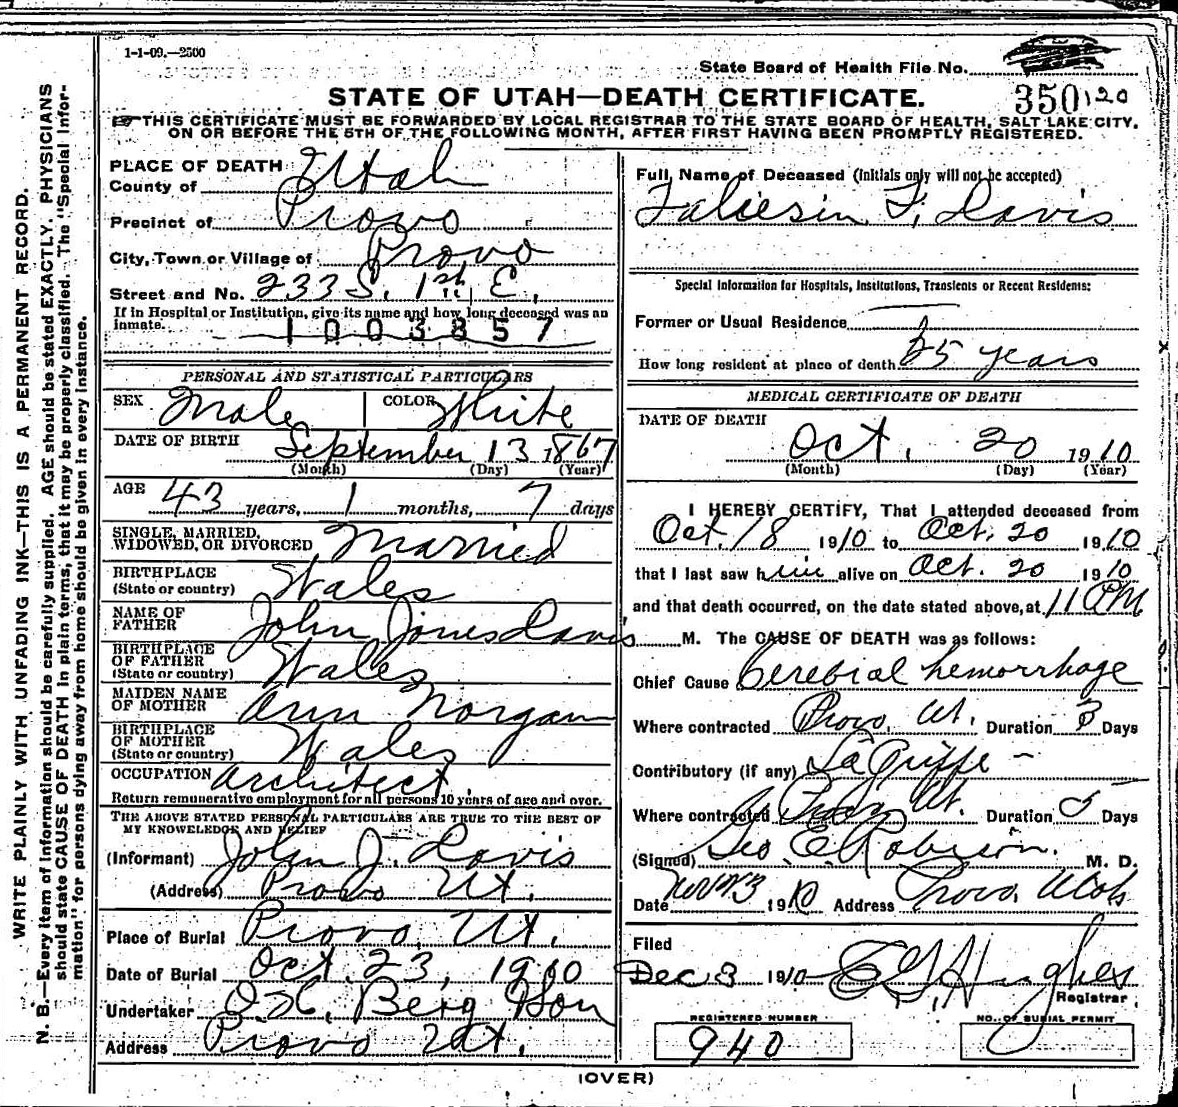 1-1-09.—2500
State Board of Health File No.
350 120
STATE OF UTAH—DEATH CERTIFICATE.
THIS CERTIFICATE MUST BE FORWARDED BY LOCAL REGISTRAR TO THE STATE BOARD OF HEALTH, SALT LAKE CITY,
ON OR BEFORE THE 5TH OF THE FOLLOWING MONTH, AFTER FIRST HAVING BEEN PROMPTLY REGISTERED.
WRITE PLAINLY WITH UNFADING INK—THIS IS A PERMANENT RECORD.
N. B.—Every item of information should be carefully supplied. AGE should be stated EXACTLY. PHYSICIANS
should state CAUSE OF DEATH in plain terms, that it may be properly classified. The "Special Infor-
mation" for persons dying away from home should be given in every instance.
PLACE OF DEATH
County of Utah
Precinct of Provo
City, Town or Village of Provo
Street and No. 233 S. 1st E.
If in Hospital or Institution, give its name and how long deceased was an
inmate.
1003857
PERSONAL AND STATISTICAL PARTICULARS
SEX Male COLOR White
DATE OF BIRTH September 13 1867
(Month) (Day) (Year)
AGE 43 years, 1 months, 7 days
SINGLE, MARRIED,
WIDOWED, OR DIVORCED Married
BIRTHPLACE
(State or country) Wales
NAME OF
FATHER John Jones Davis
BIRTHPLACE
OF FATHER
(State or country) Wales
MAIDEN NAME
OF MOTHER Ann Morgan
BIRTHPLACE
OF MOTHER
(State or country) Wales
OCCUPATION Architect
Return remunerative employment for all persons 10 years of age and over.
THE ABOVE STATED PERSONAL PARTICULARS ARE TRUE TO THE BEST OF
MY KNOWELEDGE AND BELIEF
(Informant) John J. Davis
(Address) Provo Ut.
Place of Burial Provo, Ut.
Date of Burial Oct. 23, 1910
Undertaker O. H. Berg & Son
Address Provo Ut.
Full Name of Deceased (Initials only will not be accepted)
Taliesin F. Davis
Special Information for Hospitals, Institutions, Transients or Recent Residents:
Former or Usual Residence
How long resident at place of death 25 years
MEDICAL CERTIFICATE OF DEATH
DATE OF DEATH
Oct. 20 1910
(Month) (Day) (Year)
I HEREBY CERTIFY, That I attended deceased from
Oct. 18 1910 to Oct. 20 1910
that I last saw him alive on Oct. 20 1910
and that death occurred, on the date stated above, at 11 PM
M. The CAUSE OF DEATH was as follows:
Chief Cause Cerebral hemorrhage
Where contracted Provo, Ut. Duration 3 Days
Contributory (if any) La Grippe
Where contracted Provo Ut. Duration 5 Days
(Signed) Geo E Robison. M. D.
Date 1910 Address Provo, Utah
Filed
Dec 3 1910 Hughes
Registrar
REGISTERED NUMBER
940
NO. OF BURIAL PERMIT
(OVER)